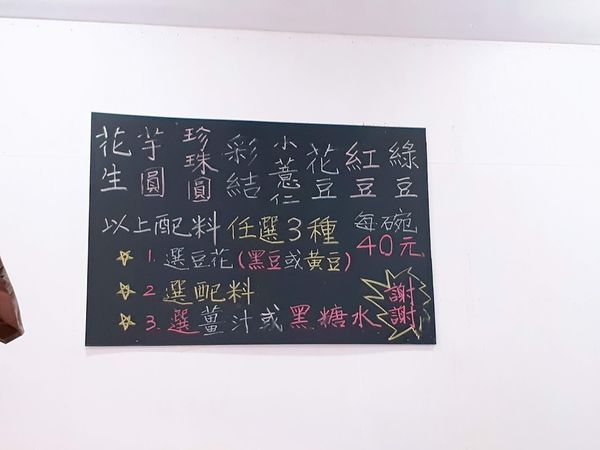 花生 芋圓 珍珠圓 彩結 小薏仁 花豆 紅豆 綠豆
以上配料任選3種 每碗40元
1. 選豆花(黑豆或黃豆)
2. 選配料
3. 選薑汁或黑糖水
謝謝